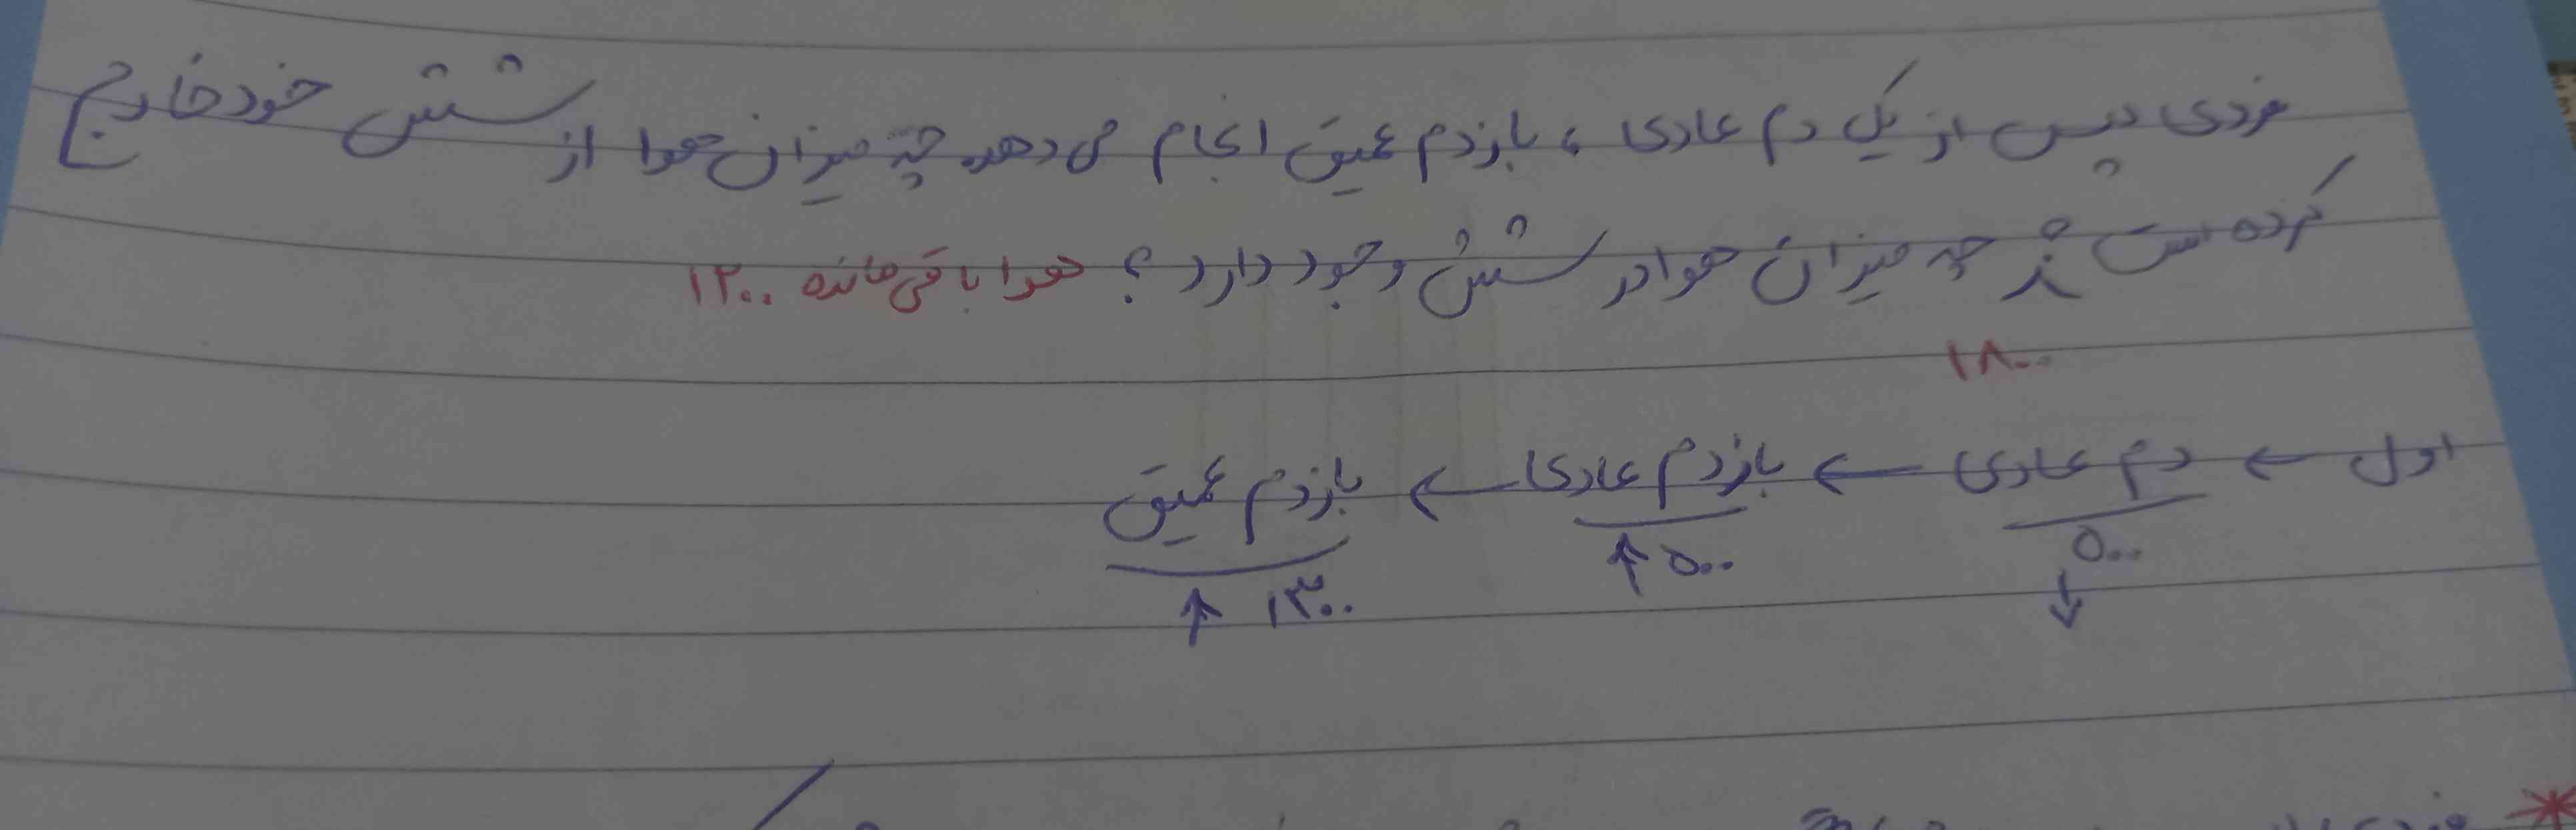 فردی پس از یک دم عادی، بازدم عمیق انجام می دهد چه میزان هوا از شش خود خارج
کرده است چه میزان هوا در شش وجود دارد؟ هوا باقی مانده ۱۲۰۰
۱۸۰۰
اول ← دم عادی ← بازدم عادی ← بازدم عمیق
۵۰۰ ↓ ۵۰۰ ↑ ۱۳۰۰ ↑